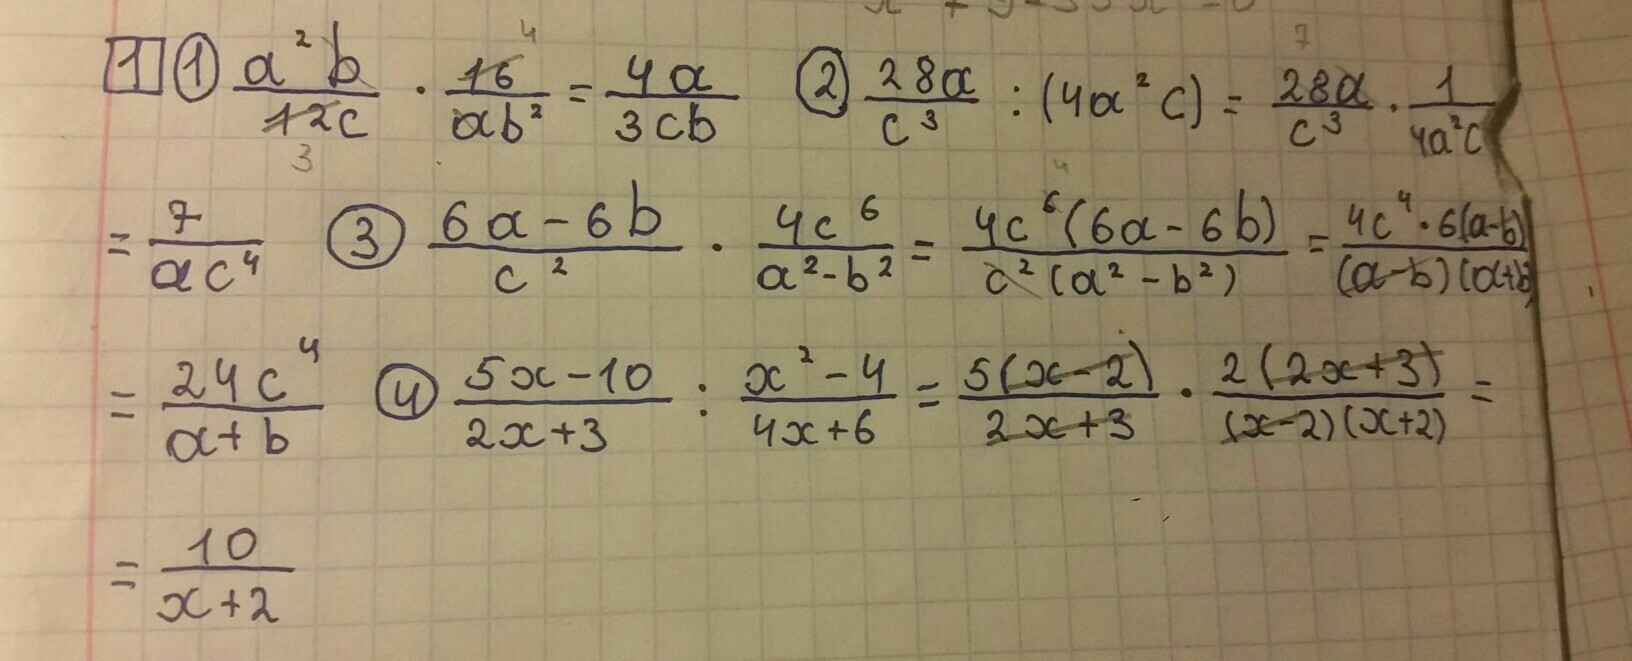 1 ① a²b/12c · 16/ab² = 4a/3cb ② 28a/c³ : (4a²c) = 28a/c³ · 1/4a²c
= 7/ac⁴ ③ 6a-6b/c² · 4c⁶/a²-b² = 4c⁶(6a-6b)/c²(a²-b²) = 4c⁴·6(a-b)/(a-b)(a+b)
= 24c⁴/a+b ④ 5x-10/2x+3 : x²-4/4x+6 = 5(x-2)/2x+3 · 2(2x+3)/(x-2)(x+2) =
= 10/x+2